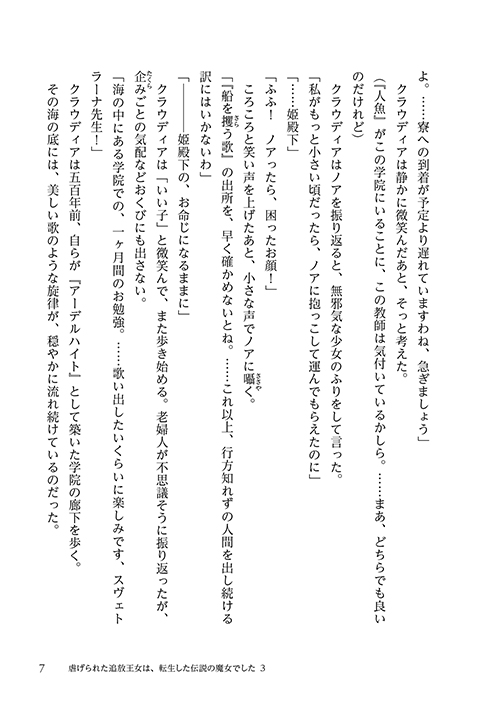 よ。……寮への到着が予定より遅れていますわね、急ぎましょう」
クラウディアは静かに微笑んだあと、そっと考えた。
(『人魚』がこの学院にいることに、この教師は気付いているかしら。……まあ、どちらでも良い
のだけれど)
クラウディアはノアを振り返ると、無邪気な少女のふりをして言った。
「私がもっと小さい頃だったら、ノアに抱っこして運んでもらえたのに」
「……姫殿下」
「ふふ! ノアったら、困ったお顔!」
ころころと笑い声を上げたあと、小さな声でノアに囁く。
「『船を攫う歌』の出所を、早く確かめないとね。……これ以上、行方知れずの人間を出し続ける
訳にはいかないわ」
「――姫殿下の、お命じになるままに」
クラウディアは「いい子」と微笑んで、また歩き始める。老婦人が不思議そうに振り返ったが、
企みごとの気配などおくびにも出さない。
「海の中にある学院での、一ヶ月間のお勉強。……歌い出したいくらいに楽しみです、スヴェト
ラーナ先生!」
クラウディアは五百年前、自らが『アーデルハイト』として築いた学院の廊下を歩く。
その海の底には、美しい歌のような旋律が、穏やかに流れ続けているのだった。
7 虐げられた追放王女は、転生した伝説の魔女でした 3